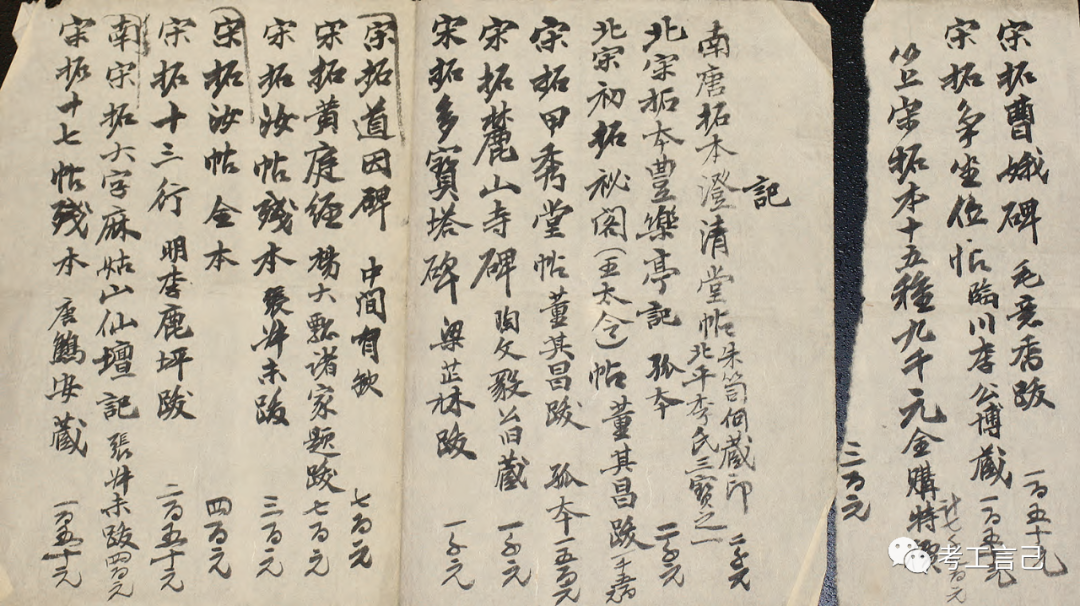 宋拓曹娥碑 毛意香跋 一百五十元
宋拓争坐位帖 临川李公博藏 一百五十元
竺宋拓本十五種九千元 全購特價
计七千五百元
三百元
記
南唐拓本澄清堂帖 朱笥何藏印 北平李氏三寶之一 二千元
北宋拓本豊樂亭記 孤本 二千元
北宋初拓祕閣（王太令）帖 董其昌跋
宋拓甲秀堂帖 董其昌跋 孤本 一千五百元
宋拓麓山寺碑 陶文毅公旧藏 一千元
宋拓多寶塔碑 梁芷林跋 一千元
宋拓道因碑 中間有缺 七百元
宋拓黄庭经 楊大瓢诸家题跋 七百元
宋拓汝帖残本 張廾未跋 三百元
宋拓汝帖全本 四百元
宋拓十三行 明李鹿坪跋 二百五十元
南宋拓大字麻姑山仙壇記 張廾未跋 四百元
宋拓十七帖残本 唐鷦安藏 一百五十元
考工言己